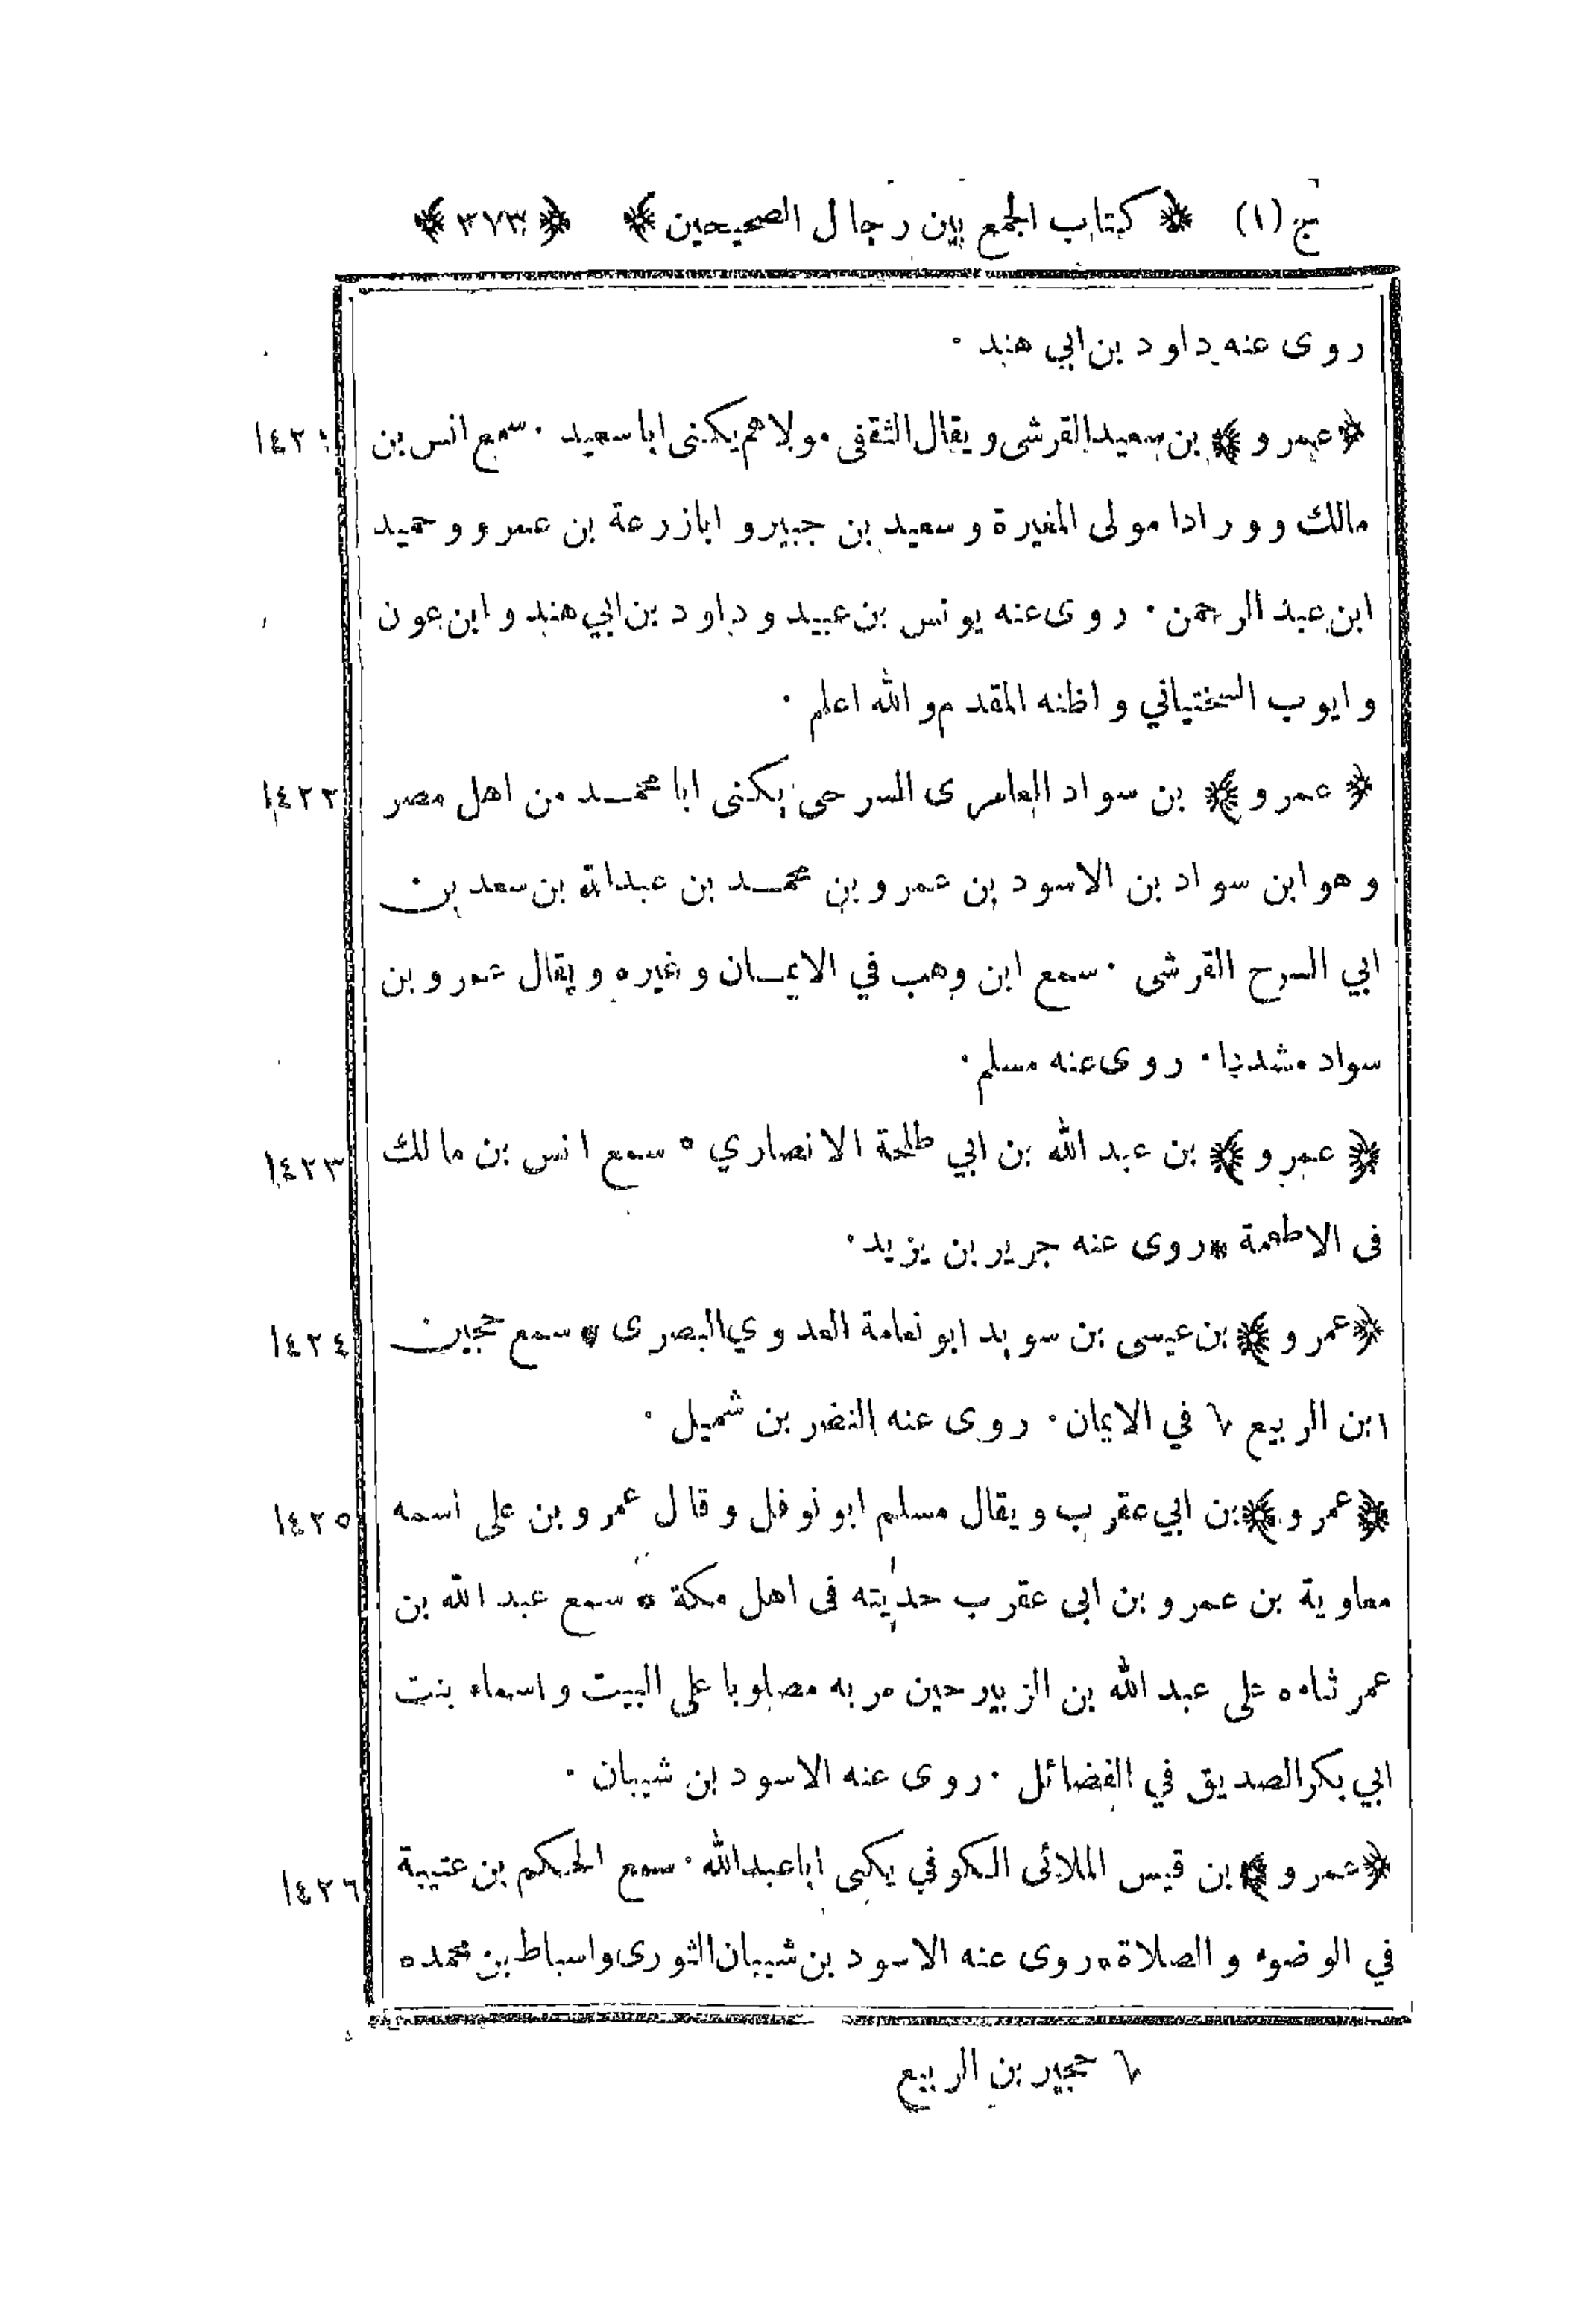 ج (١) ﴿ كتاب الجمع بين رجال الصحيحين ﴾ ﴿ ٣٧٣ ﴾
روى عنه داود بن ابي هند ٠
﴿ عمرو ﴾ بن سعيد القرشى ويقال الثقفى مولاهم يكنى ابا سعيد ٠ سمع انس بن
مالك وورادا مولى المغيرة وسعيد بن جبير و ابا زرعة بن عمرو وحميد
ابن عبد الرحمن ٠ روى عنه يونس بن عبيد وداود بن ابي هند وابن عون
وايوب السختياني واظنه المقدم والله اعلم ٠
١٤٢٢ ﴿ عمرو ﴾ بن سواد العامرى السرحى يكنى ابا محمد من اهل مصر
وهو ابن سواد بن الاسود بن عمرو بن محمد بن عبدالله بن سعد بن
ابي السرح القرشى ٠ سمع ابن وهب في الايمان وغيره ويقال عمرو بن
سواد مشددا ٠ روى عنه مسلم ٠
١٤٢٣ ﴿ عمرو ﴾ بن عبد الله بن ابي طلحة الانصاري ٥ سمع انس بن مالك
فى الاطعمة * روى عنه جرير بن يزيد ٠
١٤٢٤ ﴿ عمرو ﴾ بن عيسى بن سويد ابو نعامة العدوي البصرى * سمع حجين
ابن الربيع ٦ في الايمان ٠ روى عنه النضر بن شميل ٠
١٤٢٥ ﴿ عمرو ﴾ بن ابي عقرب ويقال مسلم ابو نوفل وقال عمرو بن على اسمه
معاوية بن عمرو بن ابى عقرب حديثه فى اهل مكة * سمع عبد الله بن
عمر ثناءه على عبد الله بن الزبير حين مر به مصلوبا على البيت واسماء بنت
ابي بكر الصديق في الفضائل ٠ روى عنه الاسود بن شيبان ٠
١٤٢٦ ﴿ عمرو ﴾ بن قيس الملائى الكوفي يكنى ابا عبدالله ٠ سمع الحكم بن عتيبة
في الوضوء والصلاة * روى عنه الاسود بن شيبان الثورى واسباط بن محمد ٥
٦ حجير بن الربيع